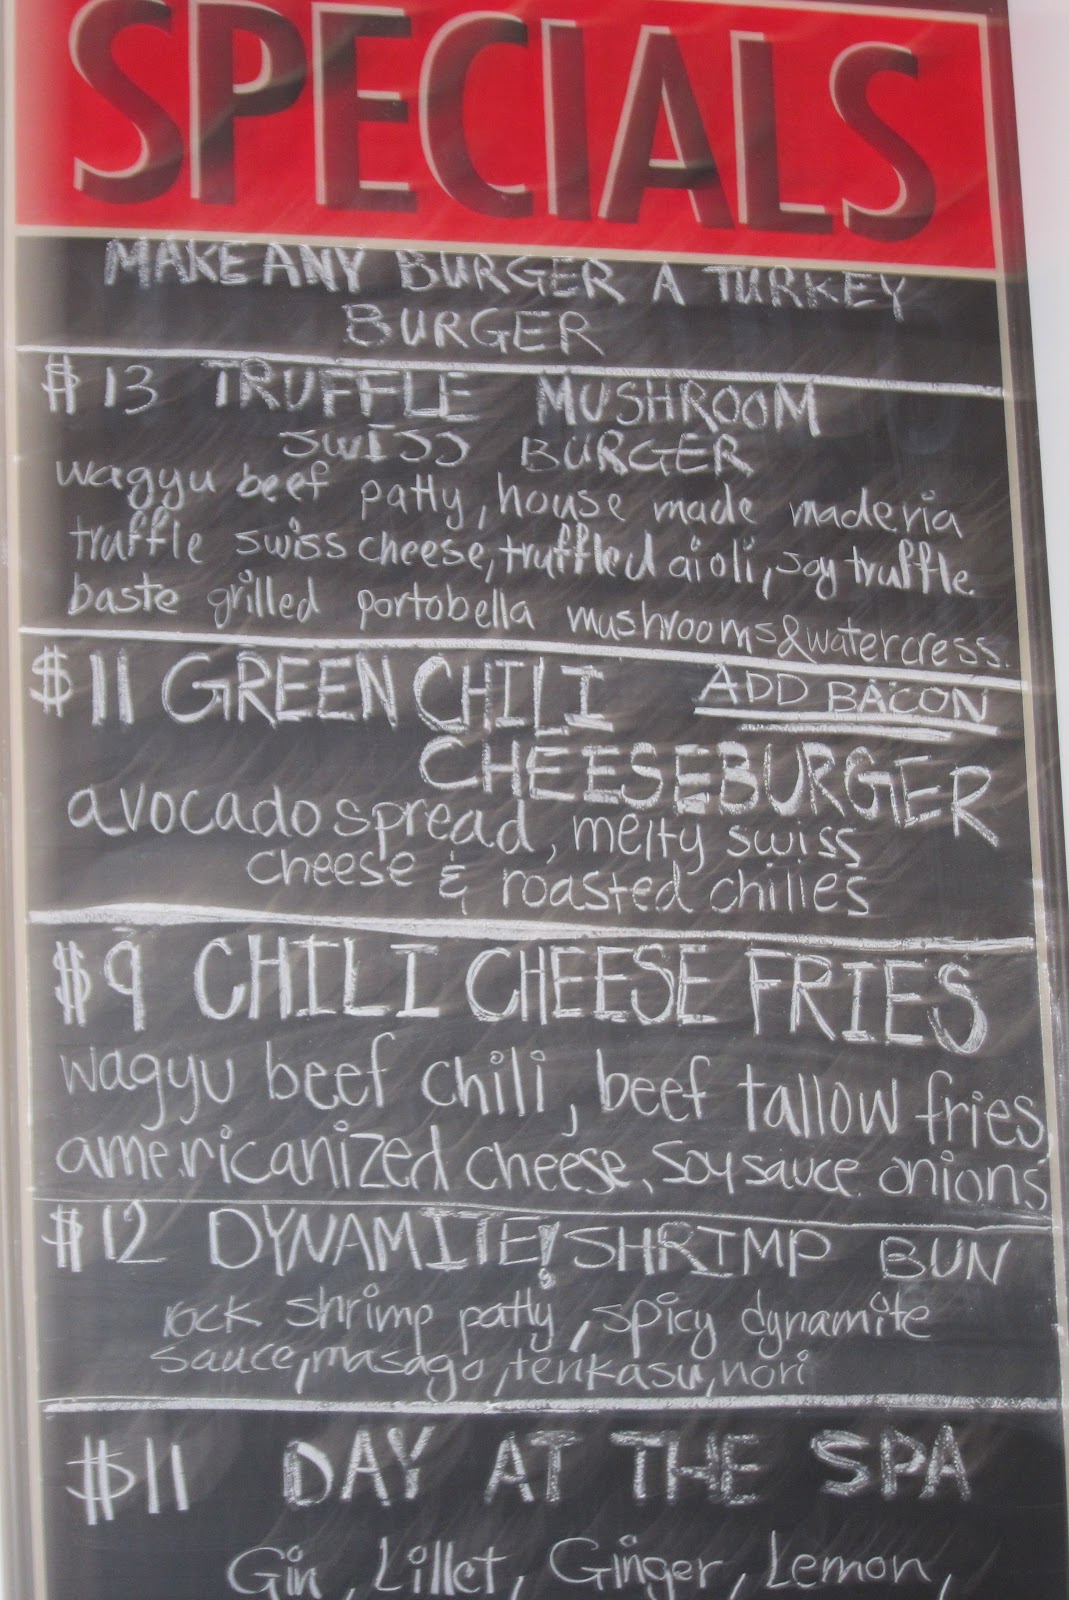 SPECIALS
MAKE ANY BURGER A TURKEY
BURGER
$13 TRUFFLE MUSHROOM
SWISS BURGER
wagyu beef patty, house made maderia
truffle swiss cheese, truffled aioli, soy truffle
baste grilled portobella mushrooms & watercress.
$11 GREEN CHILI ADD BACON
CHEESEBURGER
avocado spread, melty swiss
cheese & roasted chilies
$9 CHILI CHEESE FRIES
wagyu beef chili, beef tallow fries,
americanized cheese, soy sauce onions
$12 DYNAMITE! SHRIMP BUN
rock shrimp patty, spicy dynamite
sauce, masago, tenkasu, nori
$11 DAY AT THE SPA
Gin, Lillet, Ginger, Lemon,